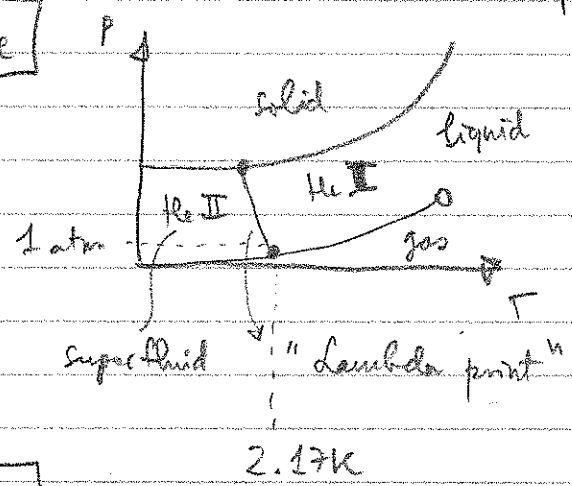 P
e
solid
liquid
He I
He II
1 atm
gas
T
superfluid
"Lambda point"
2.17K